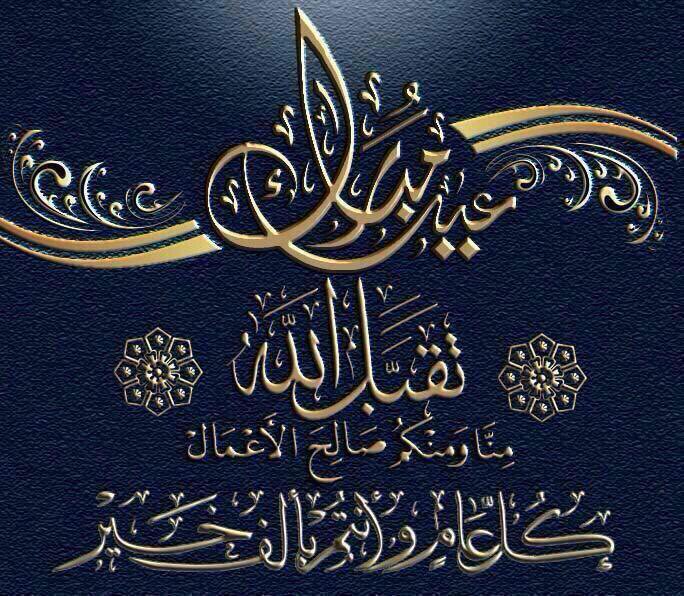 عيد مبارك
تقبل الله
منا ومنكم صالح الأعمال
كل عام وأنتم بألف خير